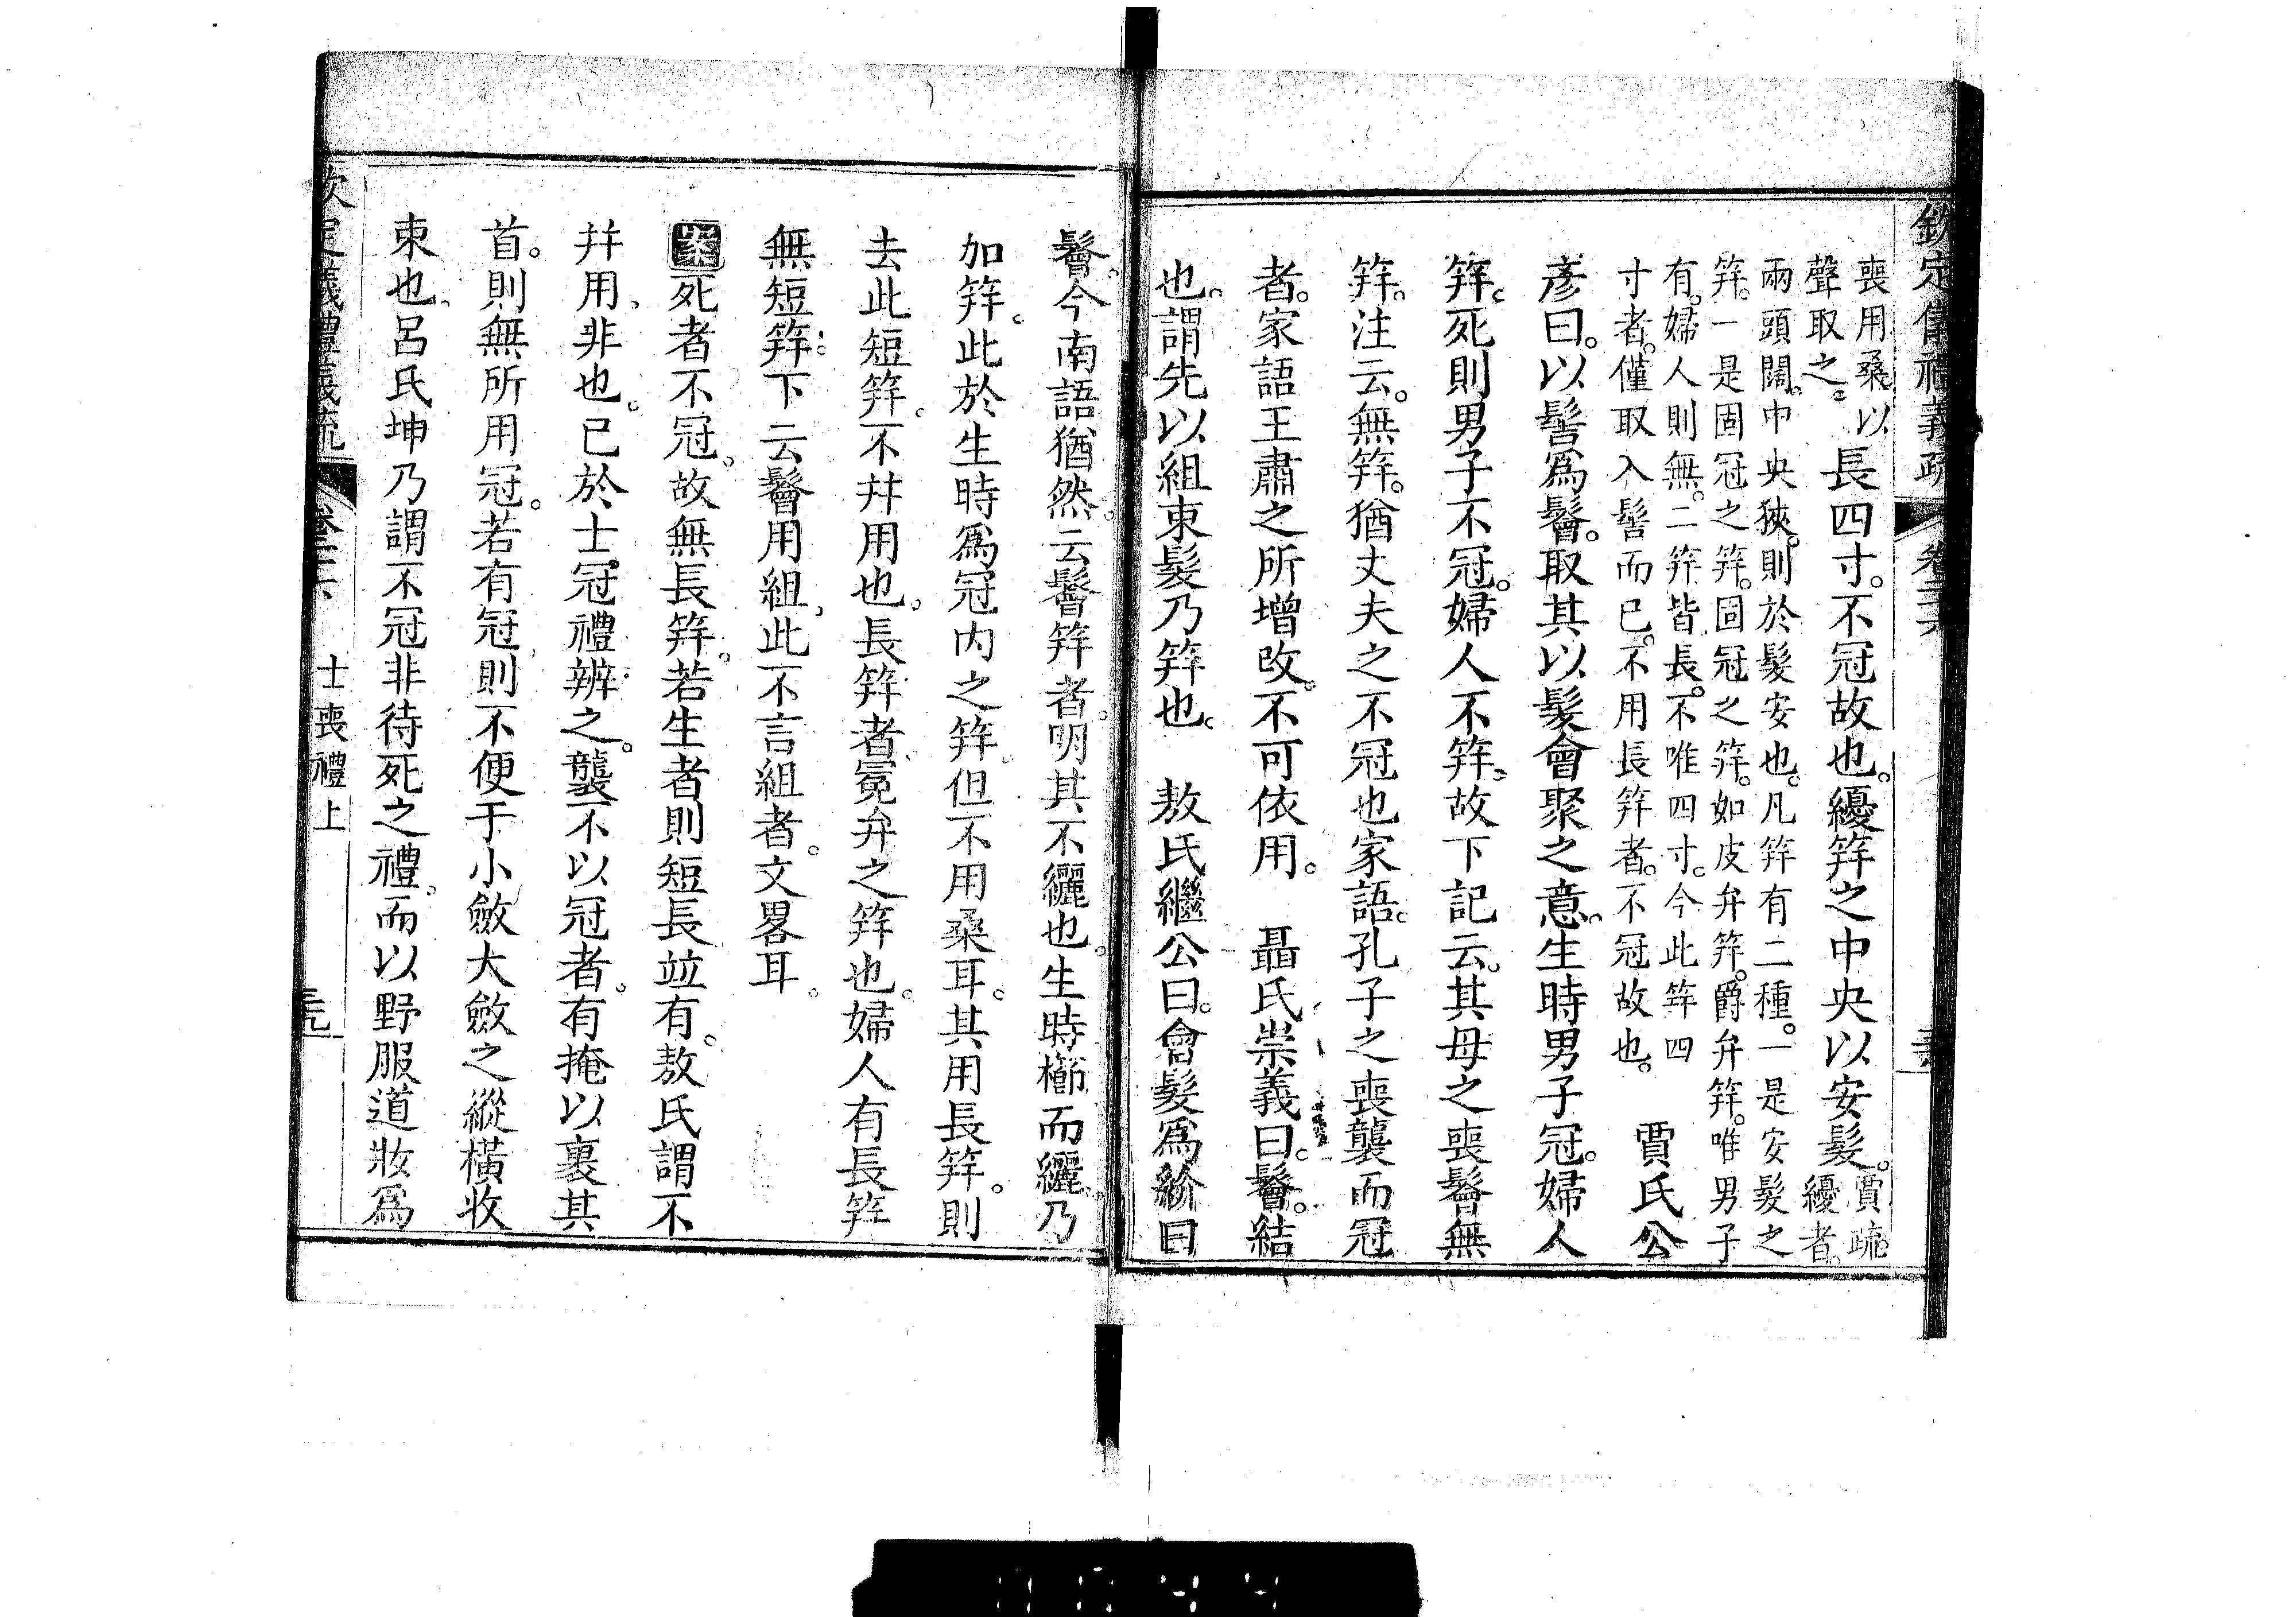 欽定儀禮義疏 卷二十六
喪用桑以聲取之。長四寸。不冠故也。纋笄之中央以安髮。賈疏。纋者。
兩頭闊。中央狹。則於髮安也。凡笄有二種。一是安髮之
笄。一是固冠之笄。固冠之笄。如皮弁笄。爵弁笄。唯男子
有。婦人則無。二笄皆長。不唯四寸。今此笄四
寸者。僅取入髻而已。不用長笄者。不冠故也。賈氏公
彥曰。以髻爲鬠。取其以髮會聚之意。生時男子冠。婦人
笄。死則男子不冠。婦人不笄。故下記云。其母之喪鬠無
笄。注云。無笄。猶丈夫之不冠也家語。孔子之喪襲而冠
者。家語王肅之所增改。不可依用。 聶氏崇義曰。鬠。結
也。謂先以組束髮乃笄也。 敖氏繼公曰。會髮爲紒曰
鬠。今南語猶然。云鬠笄者。明其不纚也。生時櫛而纚。乃
加笄。此於生時爲冠內之笄。但不用桑耳。其用長笄。則
去此短笄。不幷用也。長笄者冕弁之笄也。婦人有長笄
無短笄。下云鬠用組。此不言組者。文畧耳。
案死者不冠。故無長笄。若生者則短長竝有。敖氏謂不
幷用。非也。已於士冠禮辨之。襲不以冠者。有掩以裹其
首。則無所用冠。若有冠則不便于小斂大斂之縱橫收
束也。呂氏坤乃謂不冠非待死之禮。而以野服道妝爲
欽定儀禮義疏 士喪禮上